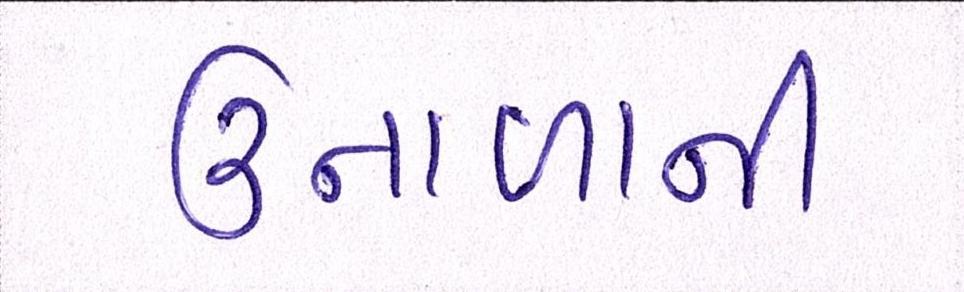 ઉનાળાની